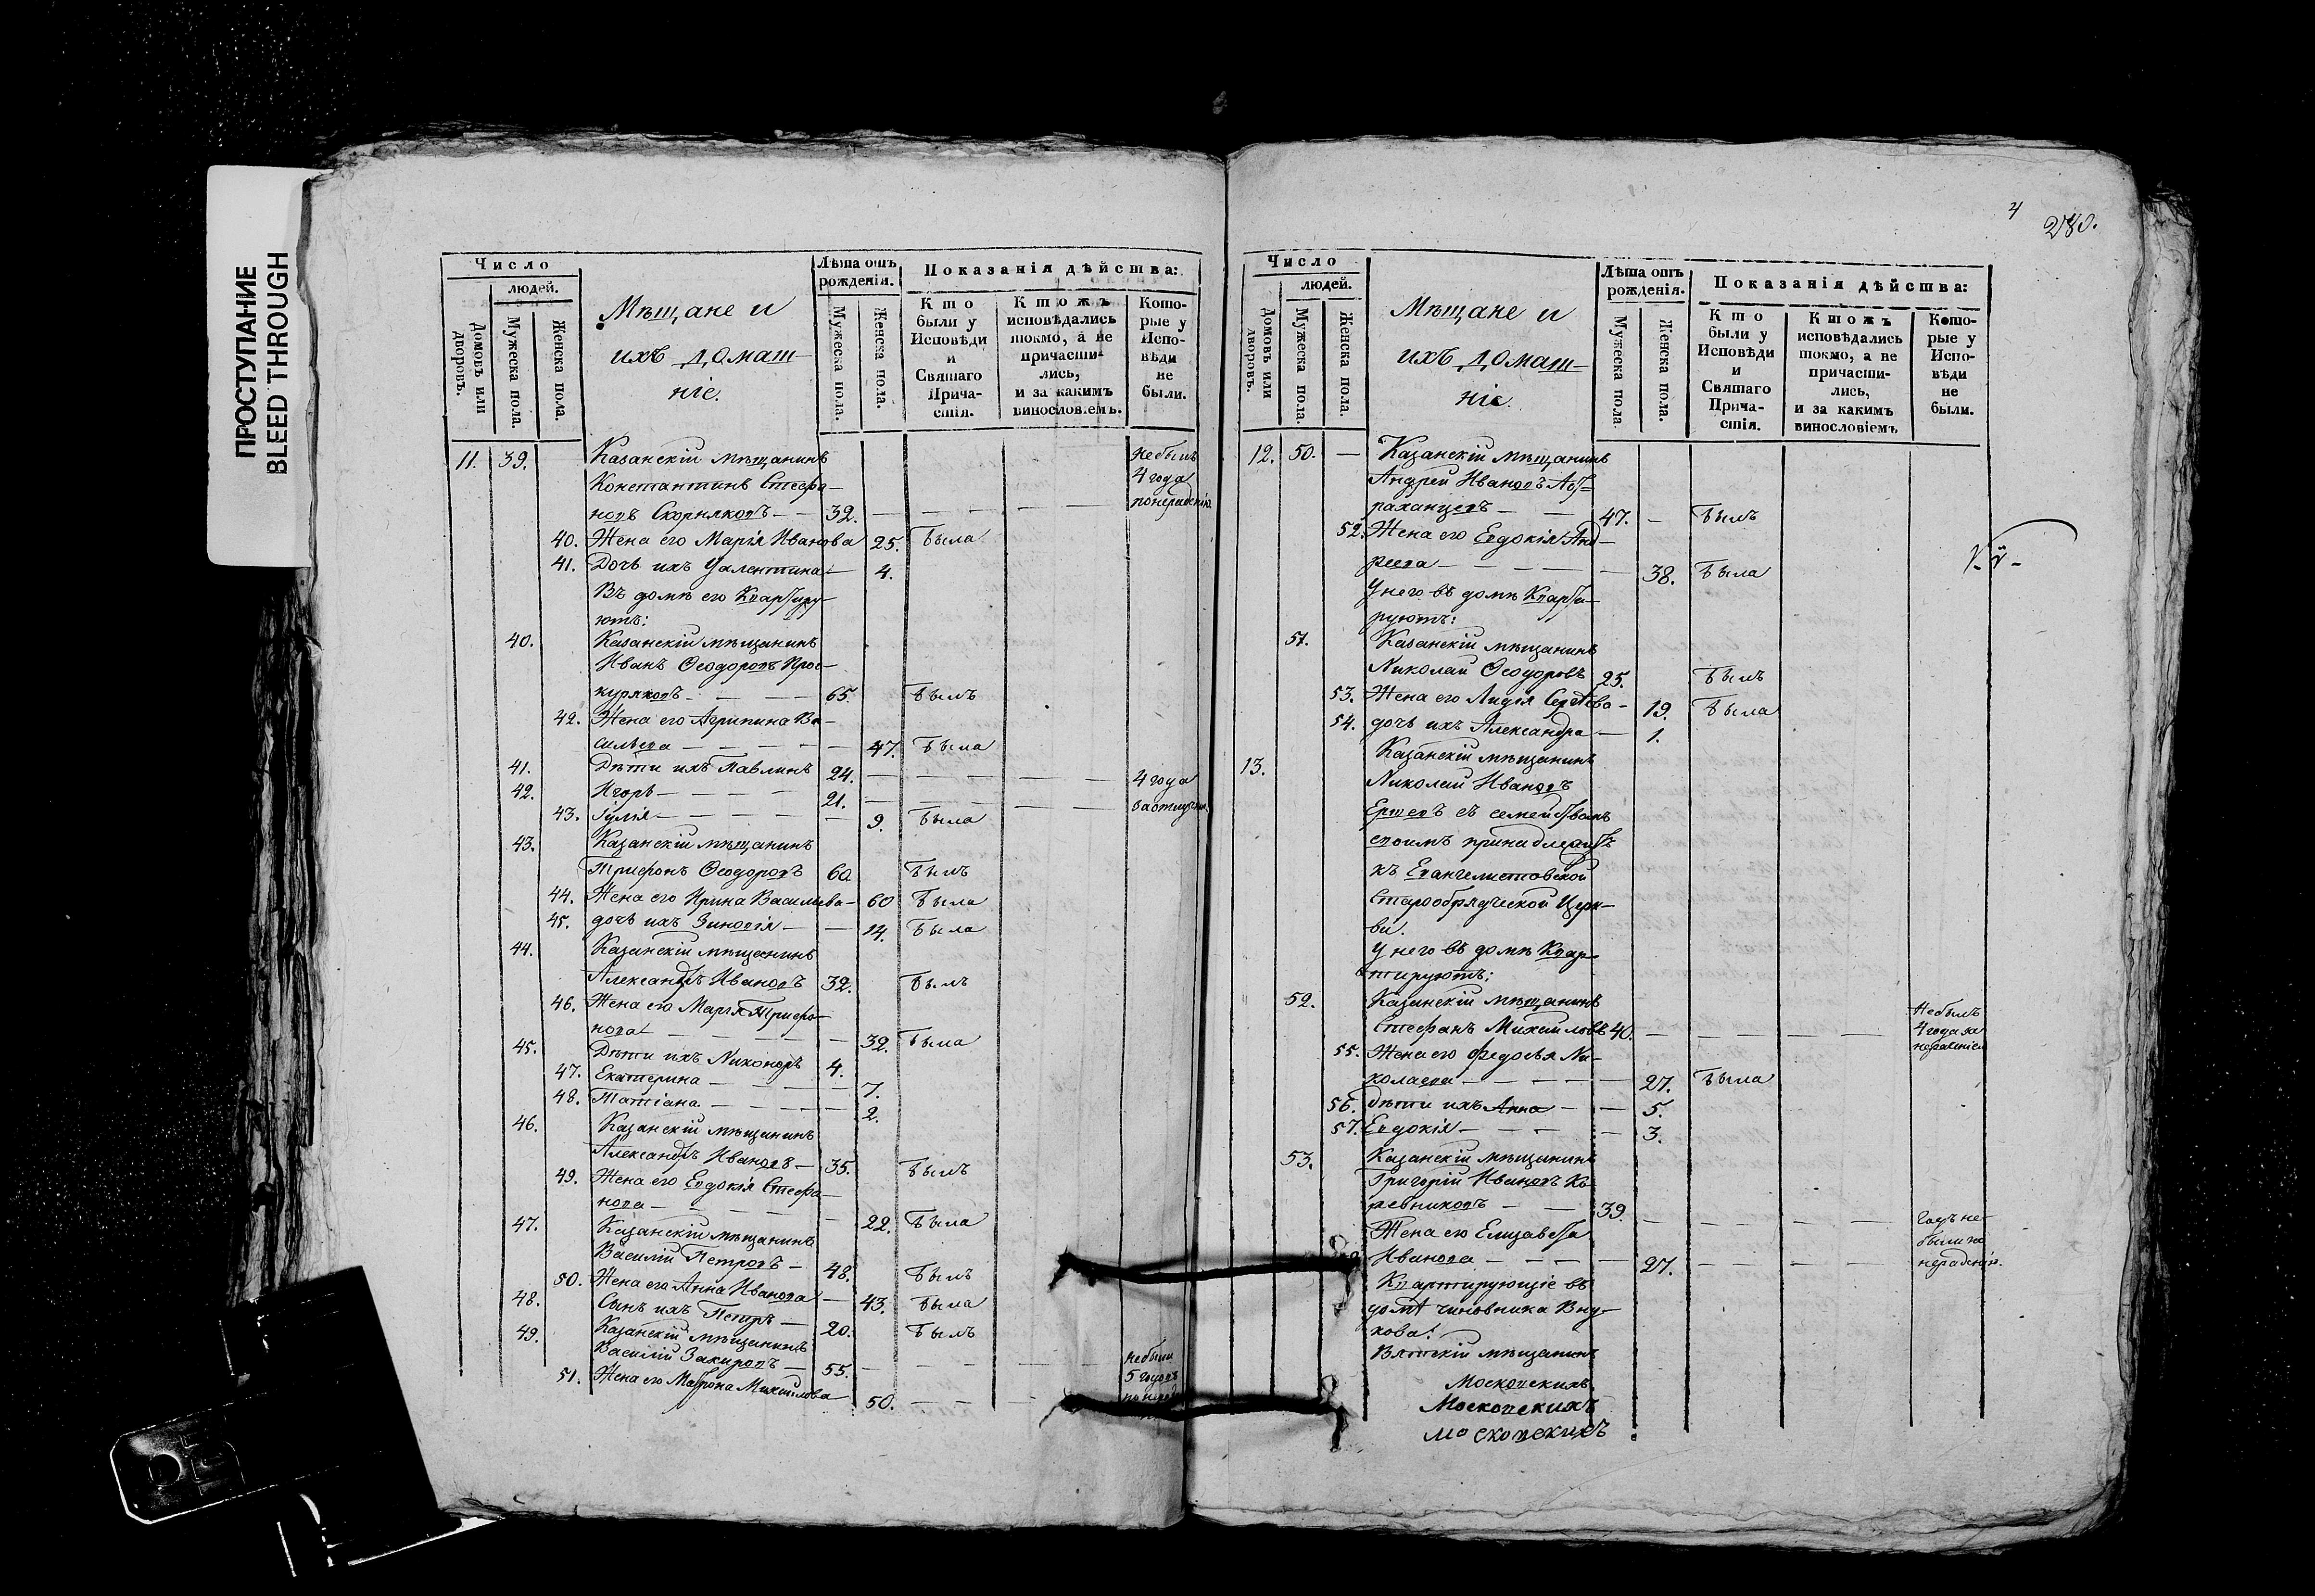 ПРОСТУПАНИЕ
BLEED THROUGH
Число
людей.
Домовъ или дворовъ.
Мужеска пола.
Женска пола.
Мѣщане и
ихъ домаш-
ніе.
Лѣта отъ рожденія.
Мужеска пола.
Женска пола.
Показанія дѣйства:
Кто были у Исповѣди и Святаго Прича-стія.
Ктожъ исповѣдались токмо, а не причасти-лись, и за какимъ винословіемъ.
Кото-рые у Испо-вѣди не были.
11. 39. Казанскій мѣщанинъ не былъ
Константинъ Стефа- 4 года
новъ Скорняковъ — 32. — — — — по нерадѣнію
40. Жена его Марія Иванова 25. Была
41. Дочь ихъ Валентина — 4.
Въ домѣ его Квартиру-
ютъ:
40. Казанскій мѣщанинъ
Иванъ Ѳеодоровъ Прос-
куряковъ — — — 65. Былъ
42. Жена его Агрипина Ва-
сильева — — — — — 47. Была
41. Дѣти ихъ Павлинъ 24. — — — — 4 года
42. Игорь — — — 21. — — — — за отлучк.
43. Іулія — — — — — 9. Была
43. Казанскій мѣщанинъ
Трифонъ Ѳеодоровъ 60 Былъ
44. Жена его Ирина Васильева — 60 Была
45. дочь ихъ Зиновія — — 14. Была
44. Казанскій мѣщанинъ
Александръ Ивановъ 32. Былъ
46. Жена его Марія Трифо-
нова — — — — 32. Была
45. Дѣти ихъ Никоноръ 4.
47. Екатерина — — — — 7.
48. Татіана — — — — 2.
46. Казанскій мѣщанинъ
Александръ Ивановъ — 35. Былъ
49. Жена его Евдокія Стефа-
нова — — — — — 22. Была
47. Казанскій мѣщанинъ
Василій Петровъ — 48. Былъ
50. Жена его Анна Иванова — 43. Была
48. Сынъ ихъ Петръ — 20. Былъ
49. Казанскій мѣщанинъ
Василій Захаровъ — 55. — — — — не были
51. Жена его Матрона Михайлова 5 годовъ
50. — — —
4
280.
Число
людей.
Домовъ или дворовъ.
Мужеска пола
Женска пола.
Мѣщане и
ихъ домаш-
ніе.
Лѣта отъ рожденія.
Мужеска пола
Женска пола.
Показанія дѣйства:
Кто были у Исповѣди и Святаго Прича-стія.
Ктожъ исповѣдались токмо, а не причасти-лись, и за какимъ винословіемъ
Кото-рые у Испо-вѣди не были.
12. 50. — Казанскій мѣщанинъ
Андрей Ивановъ Аст-
раханцевъ — — 47. — Былъ
52. Жена его Евдокія Анд-
реева — — — — — 38. Была
У него въ домѣ Кварти-
руютъ:
51. Казанскій мѣщанинъ
Николай Ѳеодоровъ 25. Былъ
53. Жена его Лидія Сергѣева — 19. Была
54. дочь ихъ Александра — 1.
13. Казанскій мѣщанинъ
Николай Ивановъ
Ершовъ съ семействомъ
своимъ принадлежитъ
къ Евангелистовской
Старообрядческой Церк-
ви.
У него въ домѣ Квар-
тируютъ:
52. Казанскій мѣщанинъ Не былъ
Стефанъ Михайловъ 40. — — — — 4 года за
55. Жена его Федосья Ни- нераденіем
колаева — — — — — 27. Была
56. дѣти ихъ Анна — — 5.
57. Евдокія — — — — 3.
53. Казанскій мѣщанинъ
Григорій Ивановъ
39. — — — — Годъ не
Жена его Елизавета были за
Иванова — — — — 27. — — — — нерадѣніе.
Квартирующіе въ
домѣ чиновника Вну-
кова:
Вятскій мѣщанинъ
Московскихъ
Московскихъ
Московскихъ